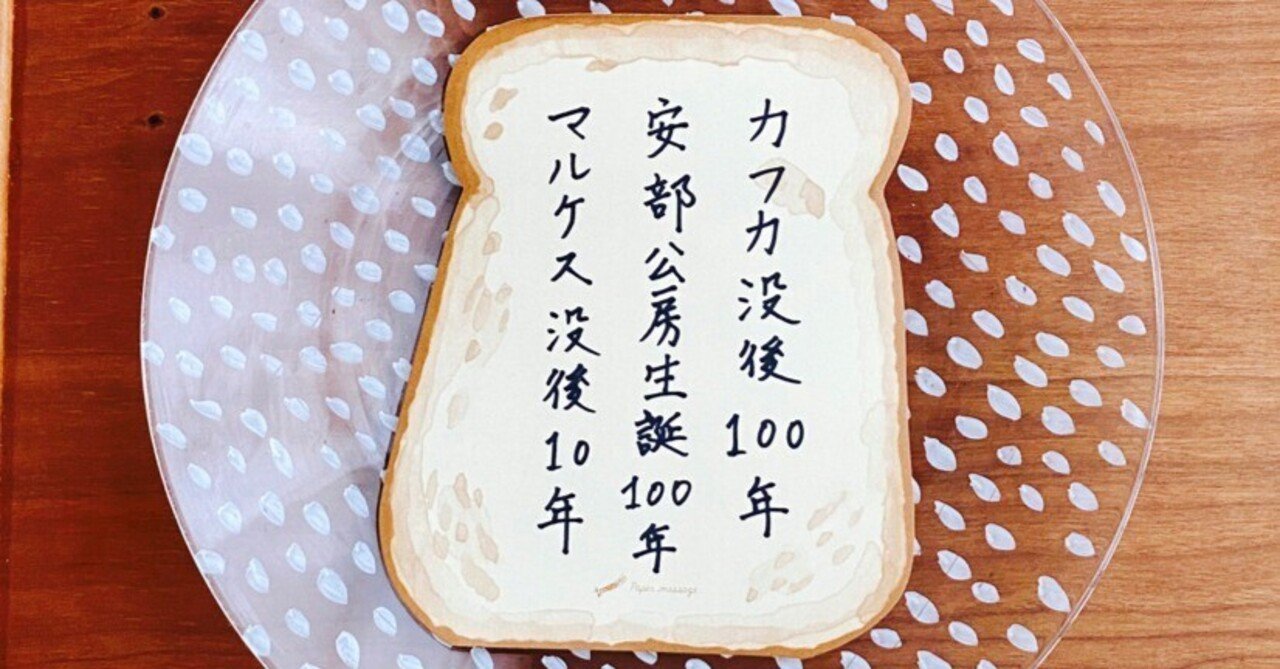 カフカ没後100年
安部公房生誕100年
マルケス没後10年
Paper message